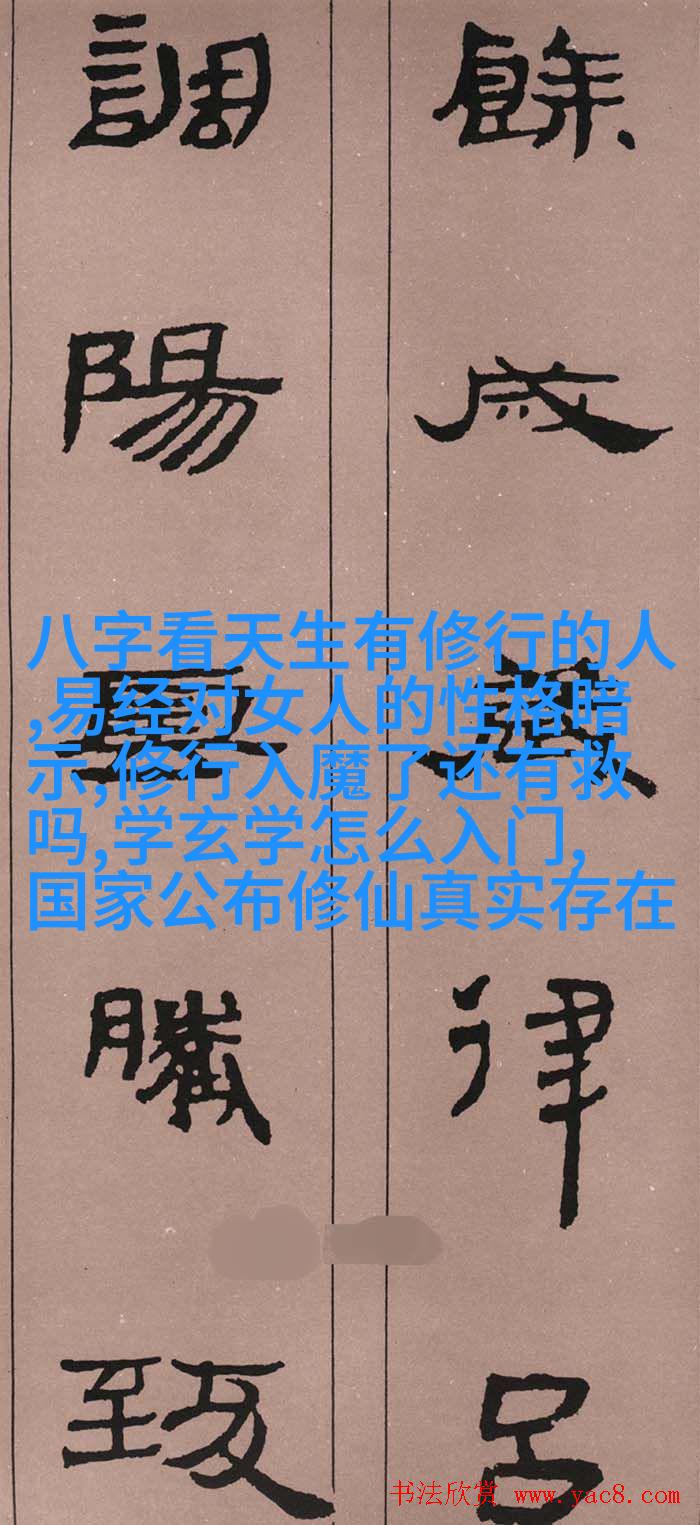 餘成律呂
調陽騰致
八字看天生有修行的人
,易经对女人的性格暗
示,修行入魔了还有救
吗,学玄学怎么入门,
国家公布修仙真实存在
书法欣赏 www.yac8.com